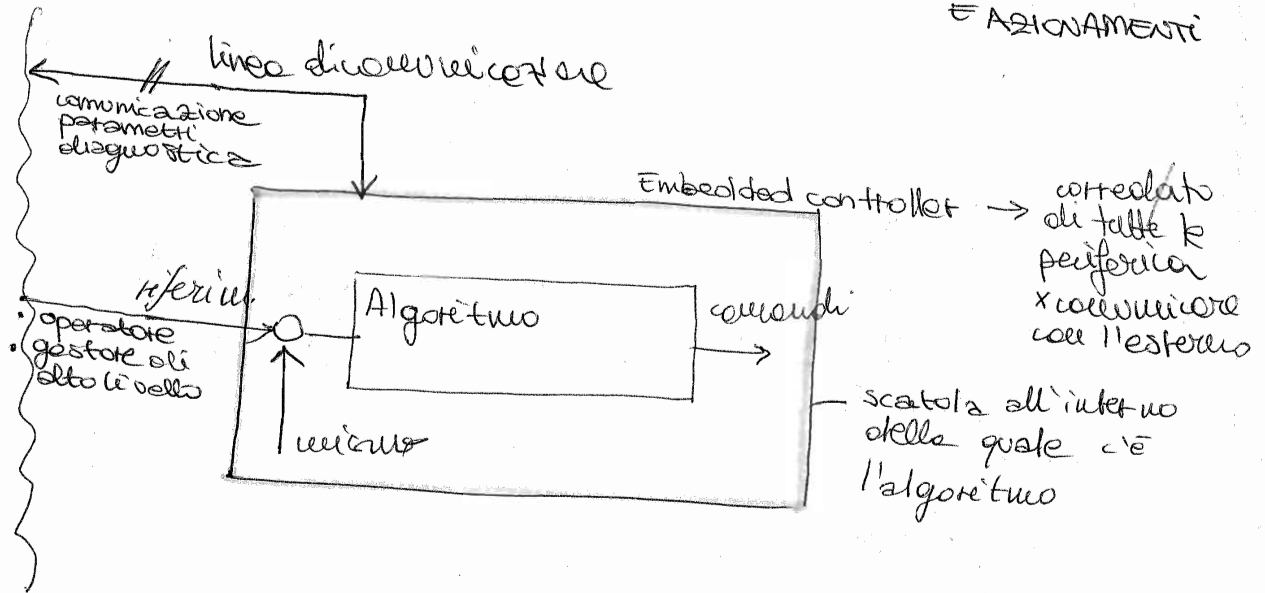 E AZIONAMENTI
linea di comunicazione
comunicazione
parametri
diagnostica
Embedded controller → corredato
di tutte le
periferica
x comunicare
con l'esterno
riferim.
Algoritmo
comandi
• operatore
• gestore di
alto livello
misura
scatola all'interno
della quale c'è
l'algoritmo